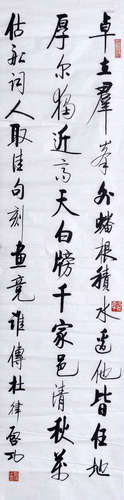 卓立羣峯外蟠根積水邊他皆任地
厚尔獨近高天白牓千家邑清秋萬
估船詞人取佳句刻畫竟誰傳杜律 啟功